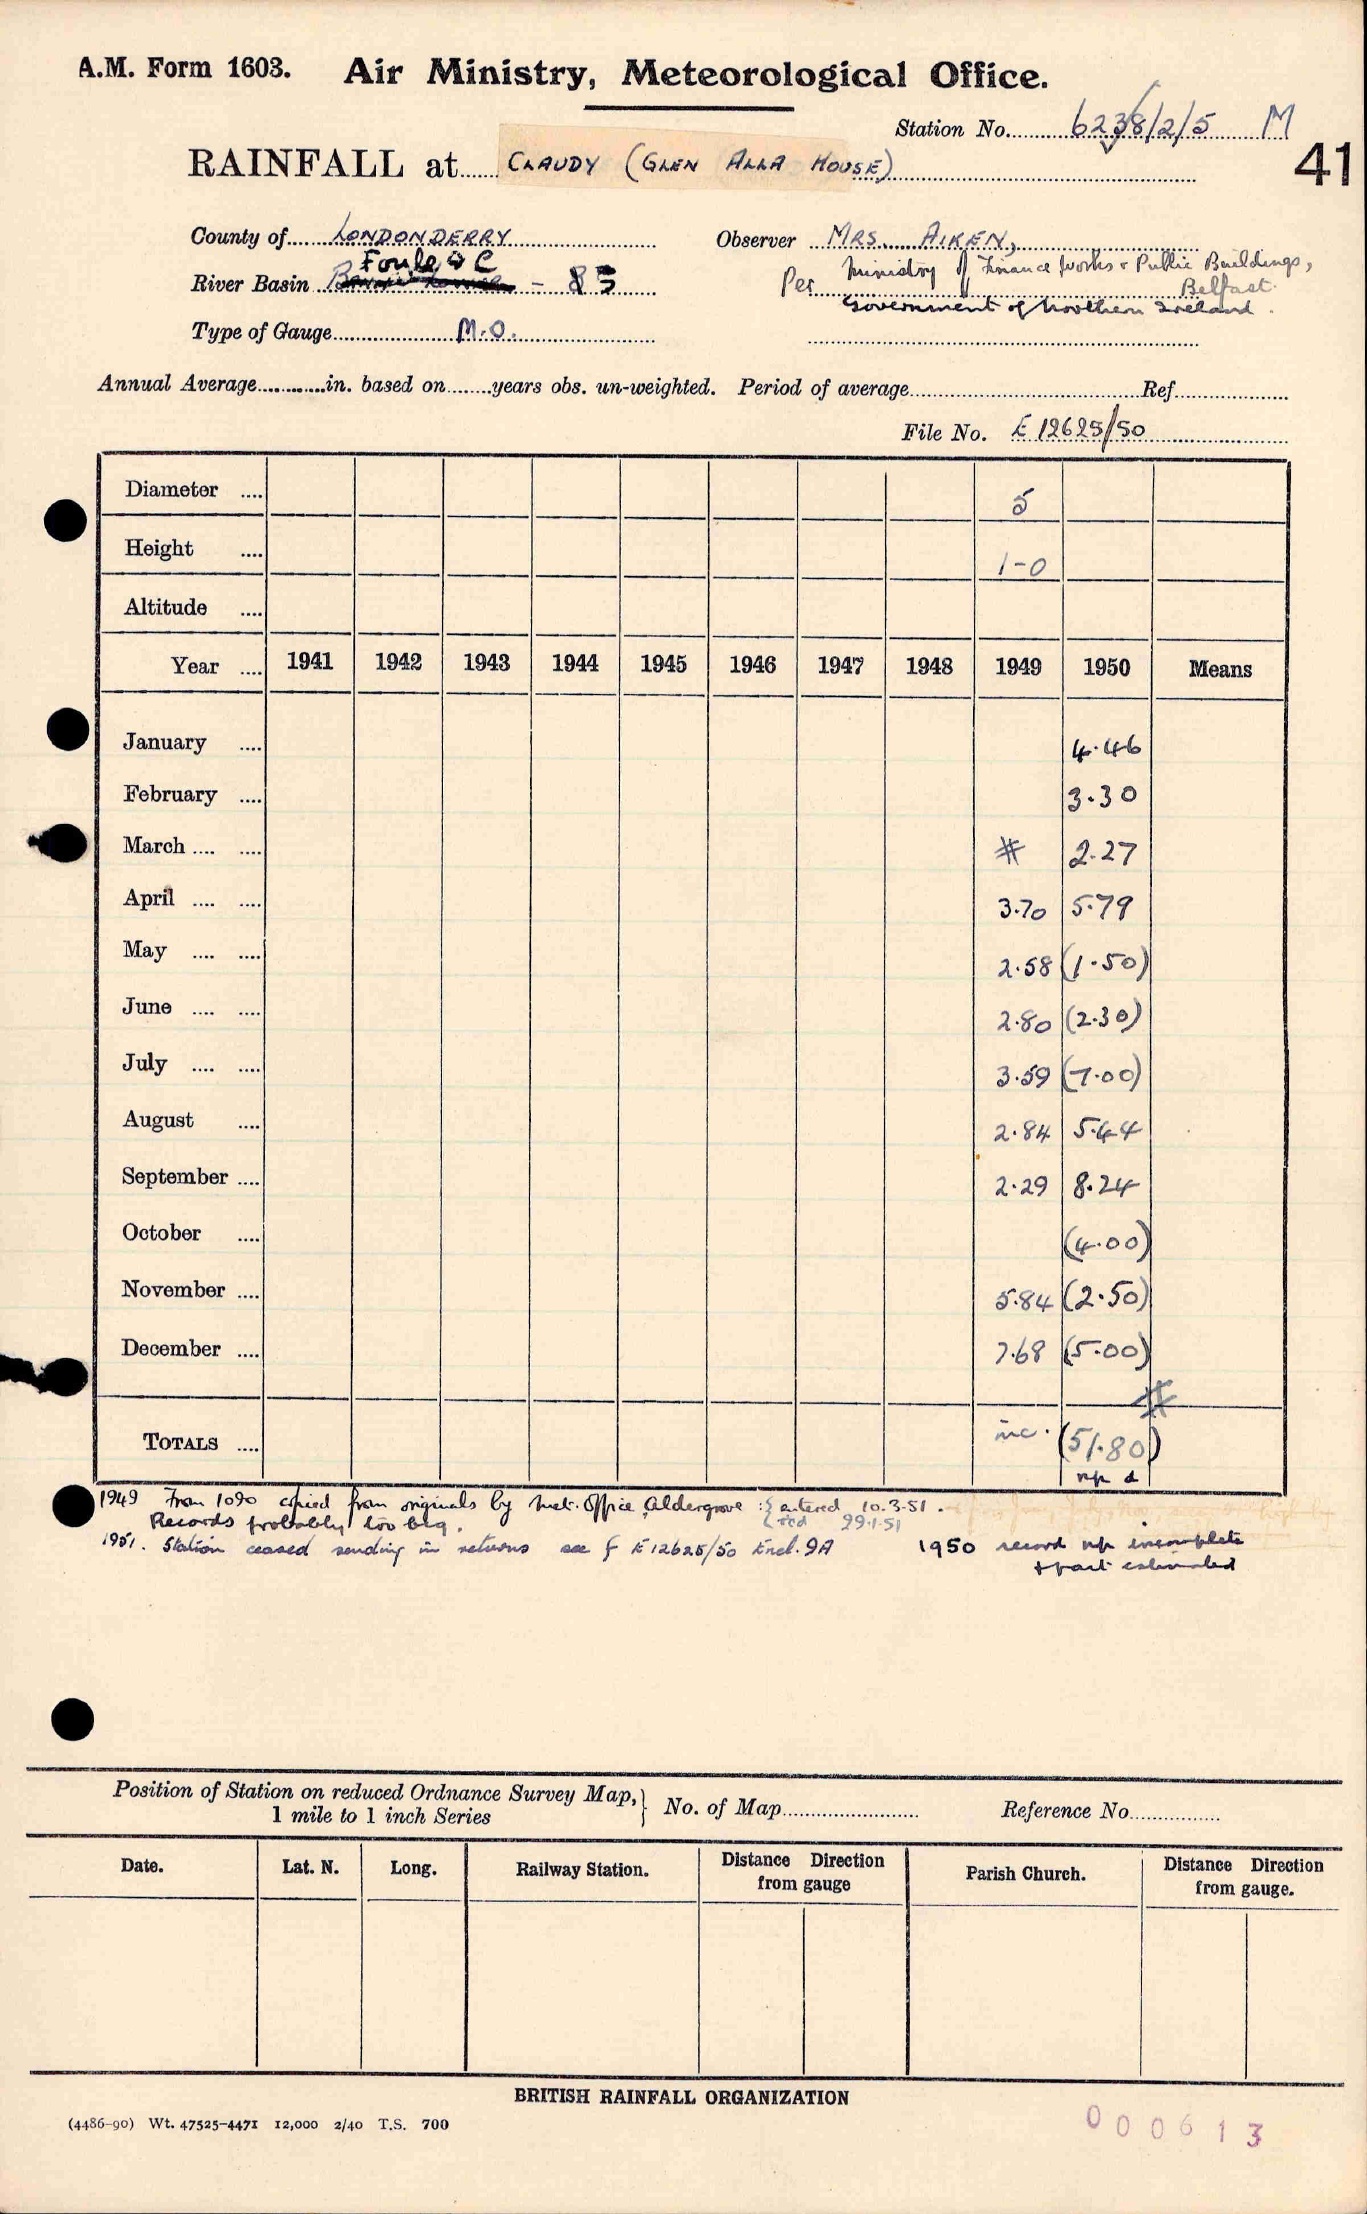 A.M. Form 1603. Air Ministry, Meteorological Office.
Station No. 6238/2/5 M
41
RAINFALL at CLAUDY (GLEN ALLA HOUSE)
County of LONDONDERRY Observer MRS. AIKEN,
Foyle &c
River Basin - 85 Per Ministry of Finance Works & Public Buildings,
Belfast.
Government of Northern Ireland.
Type of Gauge M.O.
Annual Average in. based on years obs. un-weighted. Period of average Ref
File No. E 12625/50
Diameter .... 5
Height .... 1-0
Altitude ....
Year .... 1941 1942 1943 1944 1945 1946 1947 1948 1949 1950 Means
January .... 4.46
February .... 3.30
March .... .... # 2.27
April .... .... 3.70 5.79
May .... .... 2.58 (1.50)
June .... .... 2.80 (2.30)
July .... .... 3.59 (7.00)
August .... 2.84 5.44
September .... 2.29 8.24
October .... (4.00)
November .... 5.84 (2.50)
December .... 7.68 (5.00)
#
TOTALS .... inc. (51.80)
np d
1949 From 1090 copied from originals by Met. Office Aldergrove : { entered 10.3.51.
Records probably too big. { red 29.1.51
1951. Station ceased sending in returns see f E12625/50 Encl. 9A 1950 record np incomplete
& part estimated
Position of Station on reduced Ordnance Survey Map, } No. of Map Reference No.
1 mile to 1 inch Series
Date. Lat. N. Long. Railway Station. Distance Direction from gauge Parish Church. Distance Direction from gauge.
BRITISH RAINFALL ORGANIZATION
(4486-90) Wt. 47525-4471 12,000 2/40 T.S. 700
000613